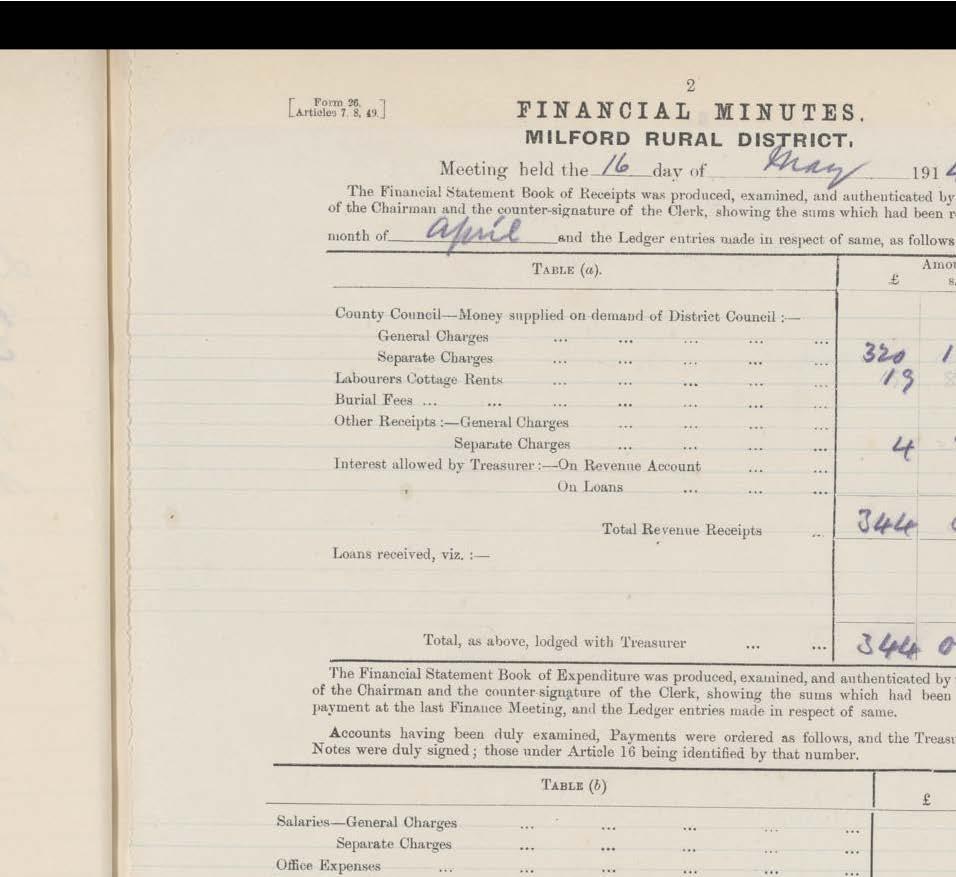 2
[Form 26. Articles 7. 8, 49.]
FINANCIAL MINUTES.
MILFORD RURAL DISTRICT.
Meeting held the 16 day of May 191
The Financial Statement Book of Receipts was produced, examined, and authenticated by
of the Chairman and the counter-signature of the Clerk, showing the sums which had been
month of April and the Ledger entries made in respect of same, as follows
TABLE (a).
£ s.
County Council—Money supplied on demand of District Council :—
General Charges ... ... ... ... ...
Separate Charges ... ... ... ... ... 320 1
Labourers Cottage Rents ... ... ... ... ... 19
Burial Fees ... ... ... ... ... ... ...
Other Receipts :—General Charges ... ... ... ...
Separate Charges ... ... ... ... 4
Interest allowed by Treasurer :—On Revenue Account ... ...
On Loans ... ... ...
Total Revenue Receipts ... 344
Loans received, viz. :—
Total, as above, lodged with Treasurer ... ... 344 0
The Financial Statement Book of Expenditure was produced, examined, and authenticated by
of the Chairman and the counter-signature of the Clerk, showing the sums which had been
payment at the last Finance Meeting, and the Ledger entries made in respect of same.
Accounts having been duly examined, Payments were ordered as follows, and the
Notes were duly signed ; those under Article 16 being identified by that number.
TABLE (b)
£
Salaries—General Charges ... ... ... ... ...
Separate Charges ... ... ... ... ...
Office Expenses ... ... ... ... ... ...